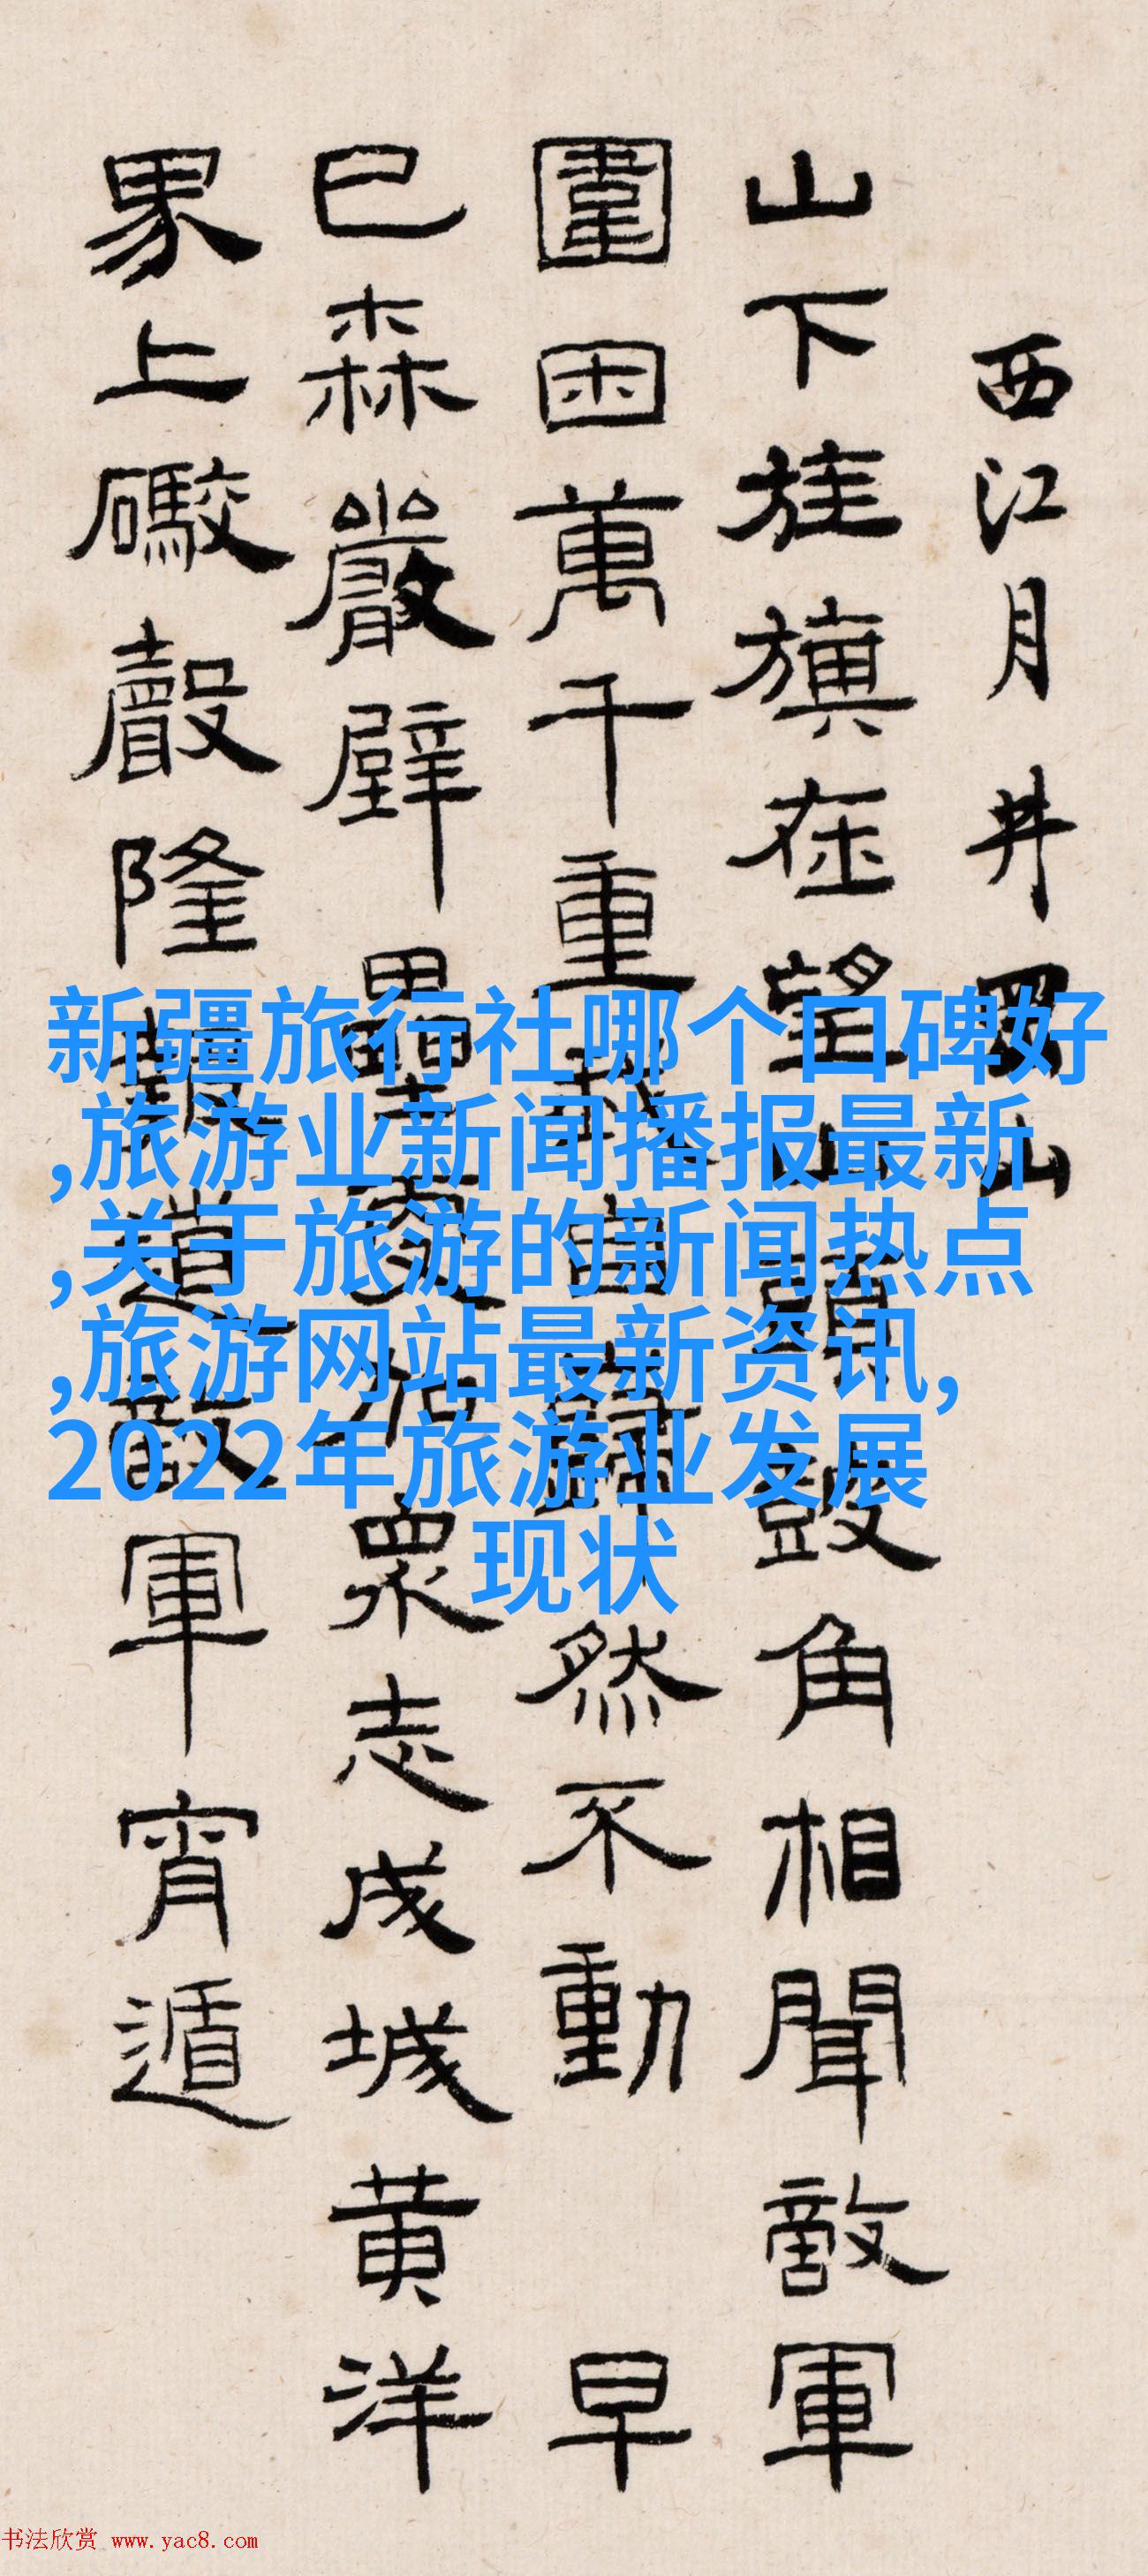 西江月 井岡山
山下旌旗在望山頭鼓角相聞敵軍
圍困萬千重我自巋然不動 早
已森嚴壁壘更加眾志成城黃洋
界上礮聲隆報道敵軍宵遁
新疆旅行社哪个口碑好
,旅游业新闻播报最新
,关于旅游的新闻热点
,旅游网站最新资讯,
2022年旅游业发展
现状
书法欣赏 www.yac8.com